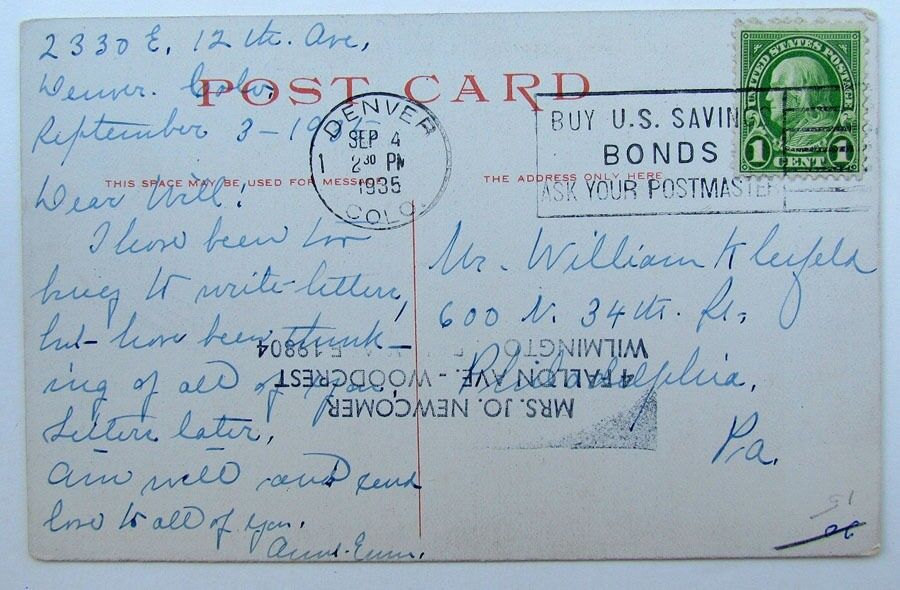 2330 E. 12th. Ave,
Denver. Colo,
September 3-1935
POST CARD
THIS SPACE MAY BE USED FOR MESSAGE
THE ADDRESS ONLY HERE
DENVER
SEP 4
1 2 30 PM
1935
COLO.
BUY U.S. SAVIN
BONDS
ASK YOUR POSTMASTER
UNITED STATES POSTAGE
1 CENT 1
Dear Will:
I have been too
busy to write letters,
but have been think-
ing of all of you.
Letters later.
Am well and send
love to all of you.
Aunt Emm.
Mr. William Kleifeld
600 N. 34th. St.
Philadelphia,
Pa.
MRS. JO. NEWCOMER
4 FALLON AVE. - WOODCREST
WILMINGTON 19804